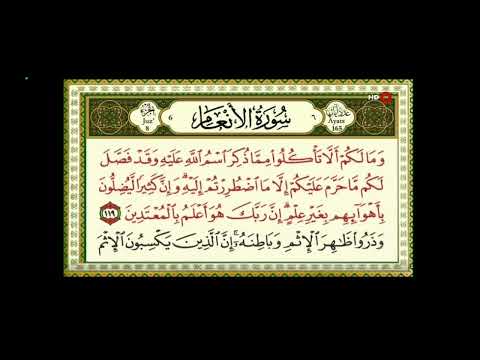 HD
الجزء
Juz'
8
6
سورة الأنعام
٦
عدد آياتها
Ayats
165
وَمَا لَكُمْ أَلَّا تَأْكُلُوا۟ مِمَّا ذُكِرَ ٱسْمُ ٱللَّهِ عَلَيْهِ وَقَدْ فَصَّلَ
لَكُم مَّا حَرَّمَ عَلَيْكُمْ إِلَّا مَا ٱضْطُرِرْتُمْ إِلَيْهِ ۗ وَإِنَّ كَثِيرًا لَّيُضِلُّونَ
بِأَهْوَآئِهِم بِغَيْرِ عِلْمٍ ۗ إِنَّ رَبَّكَ هُوَ أَعْلَمُ بِٱلْمُعْتَدِينَ ١١٩
وَذَرُوا۟ ظَٰهِرَ ٱلْإِثْمِ وَبَاطِنَهُۥٓ ۚ إِنَّ ٱلَّذِينَ يَكْسِبُونَ ٱلْإِثْمَ